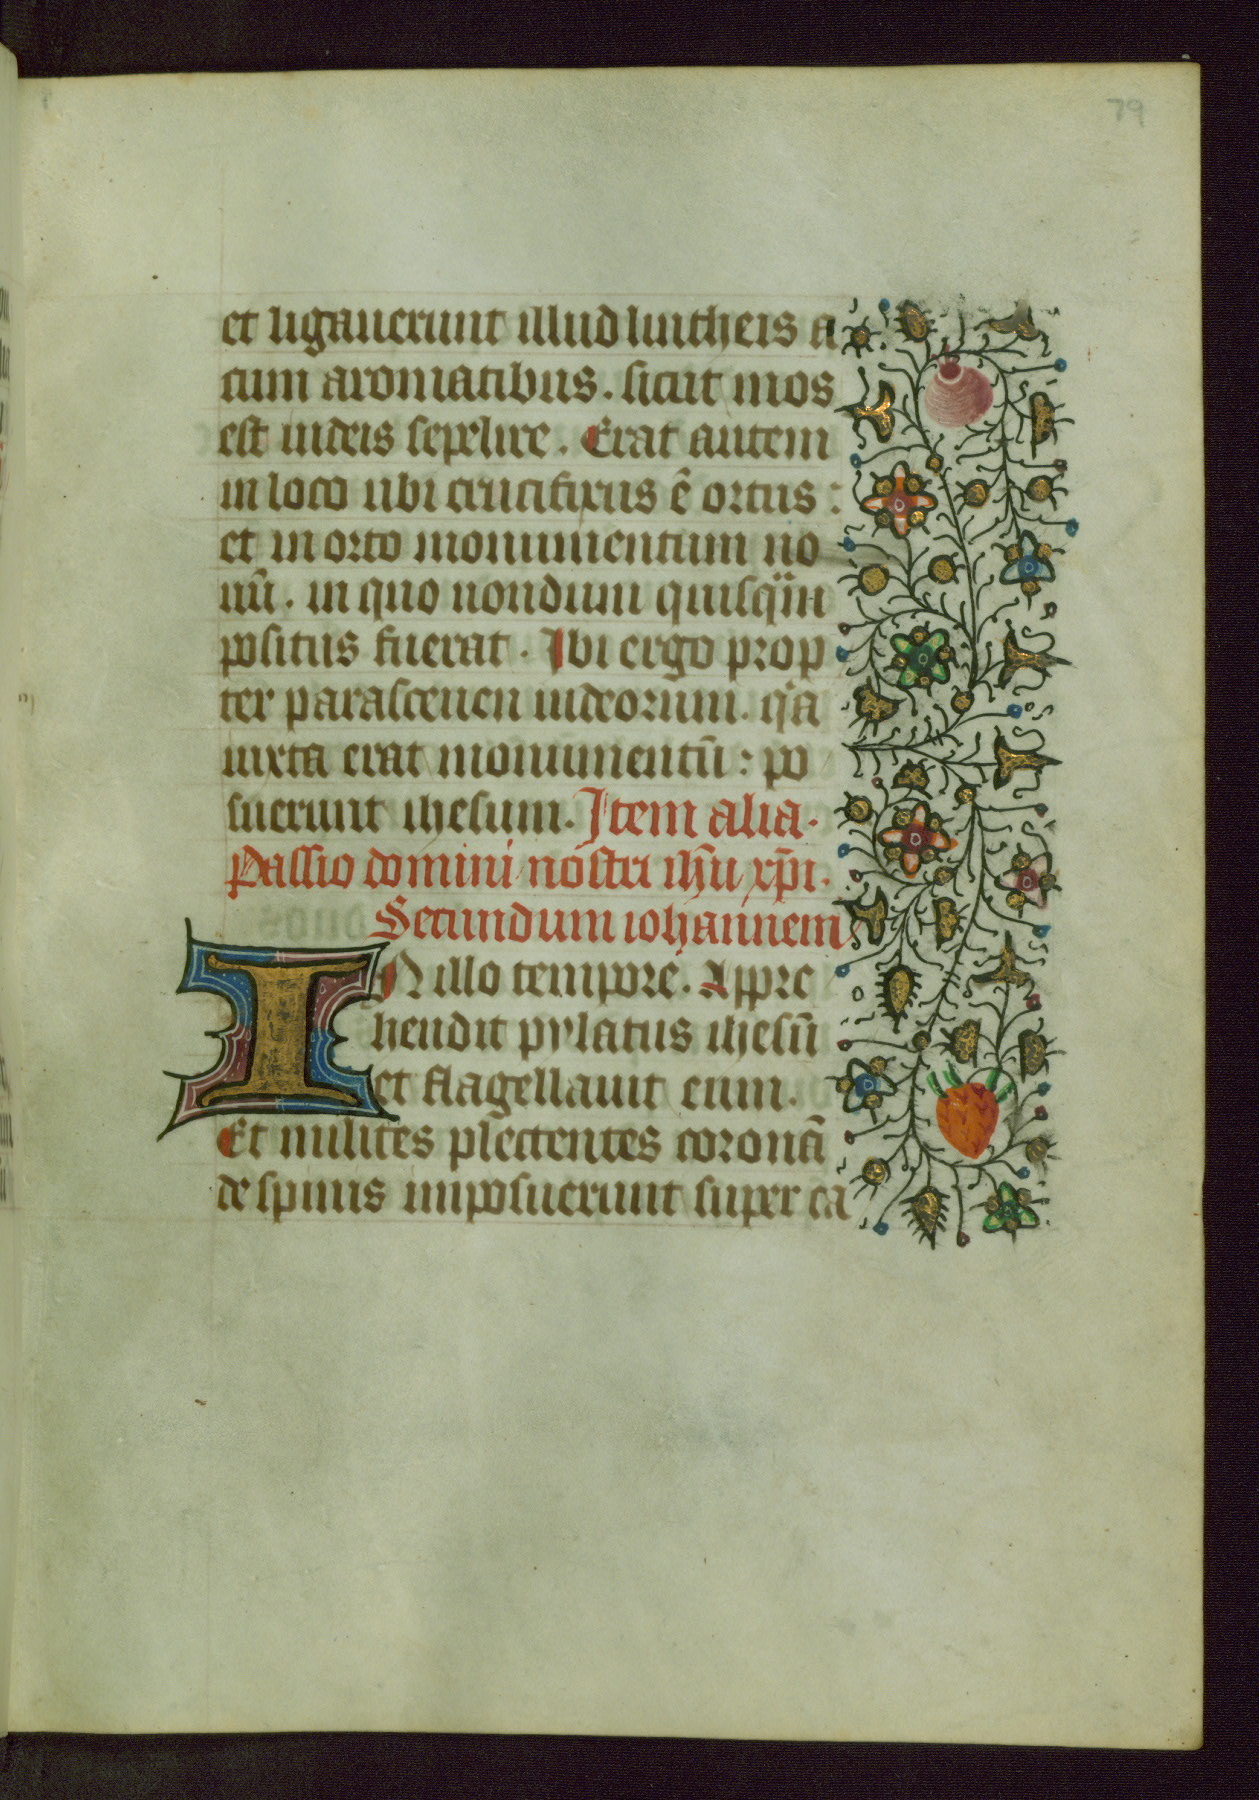 79
et ligauerunt illud lintheis a
cum aromatibus. sicut mos
est iudeis sepelire. Erat autem
in loco ubi crucifixus ē ortus:
et in orto monumentum no
uū. in quo nondum quisq̈m
positus fuerat. Ibi ergo prop
ter parasceuen iudeorum. qͥa
iuxta erat monumentū: po
suerunt ihesum. Item alia.
Passio domini nostri ihū xp̄i.
Secundum iohannem
IN illo tempore. Appre
hendit pylatus ihesū
et flagellauit eum.
Et milites plectentes coronā
de spinis imposuerunt super ca